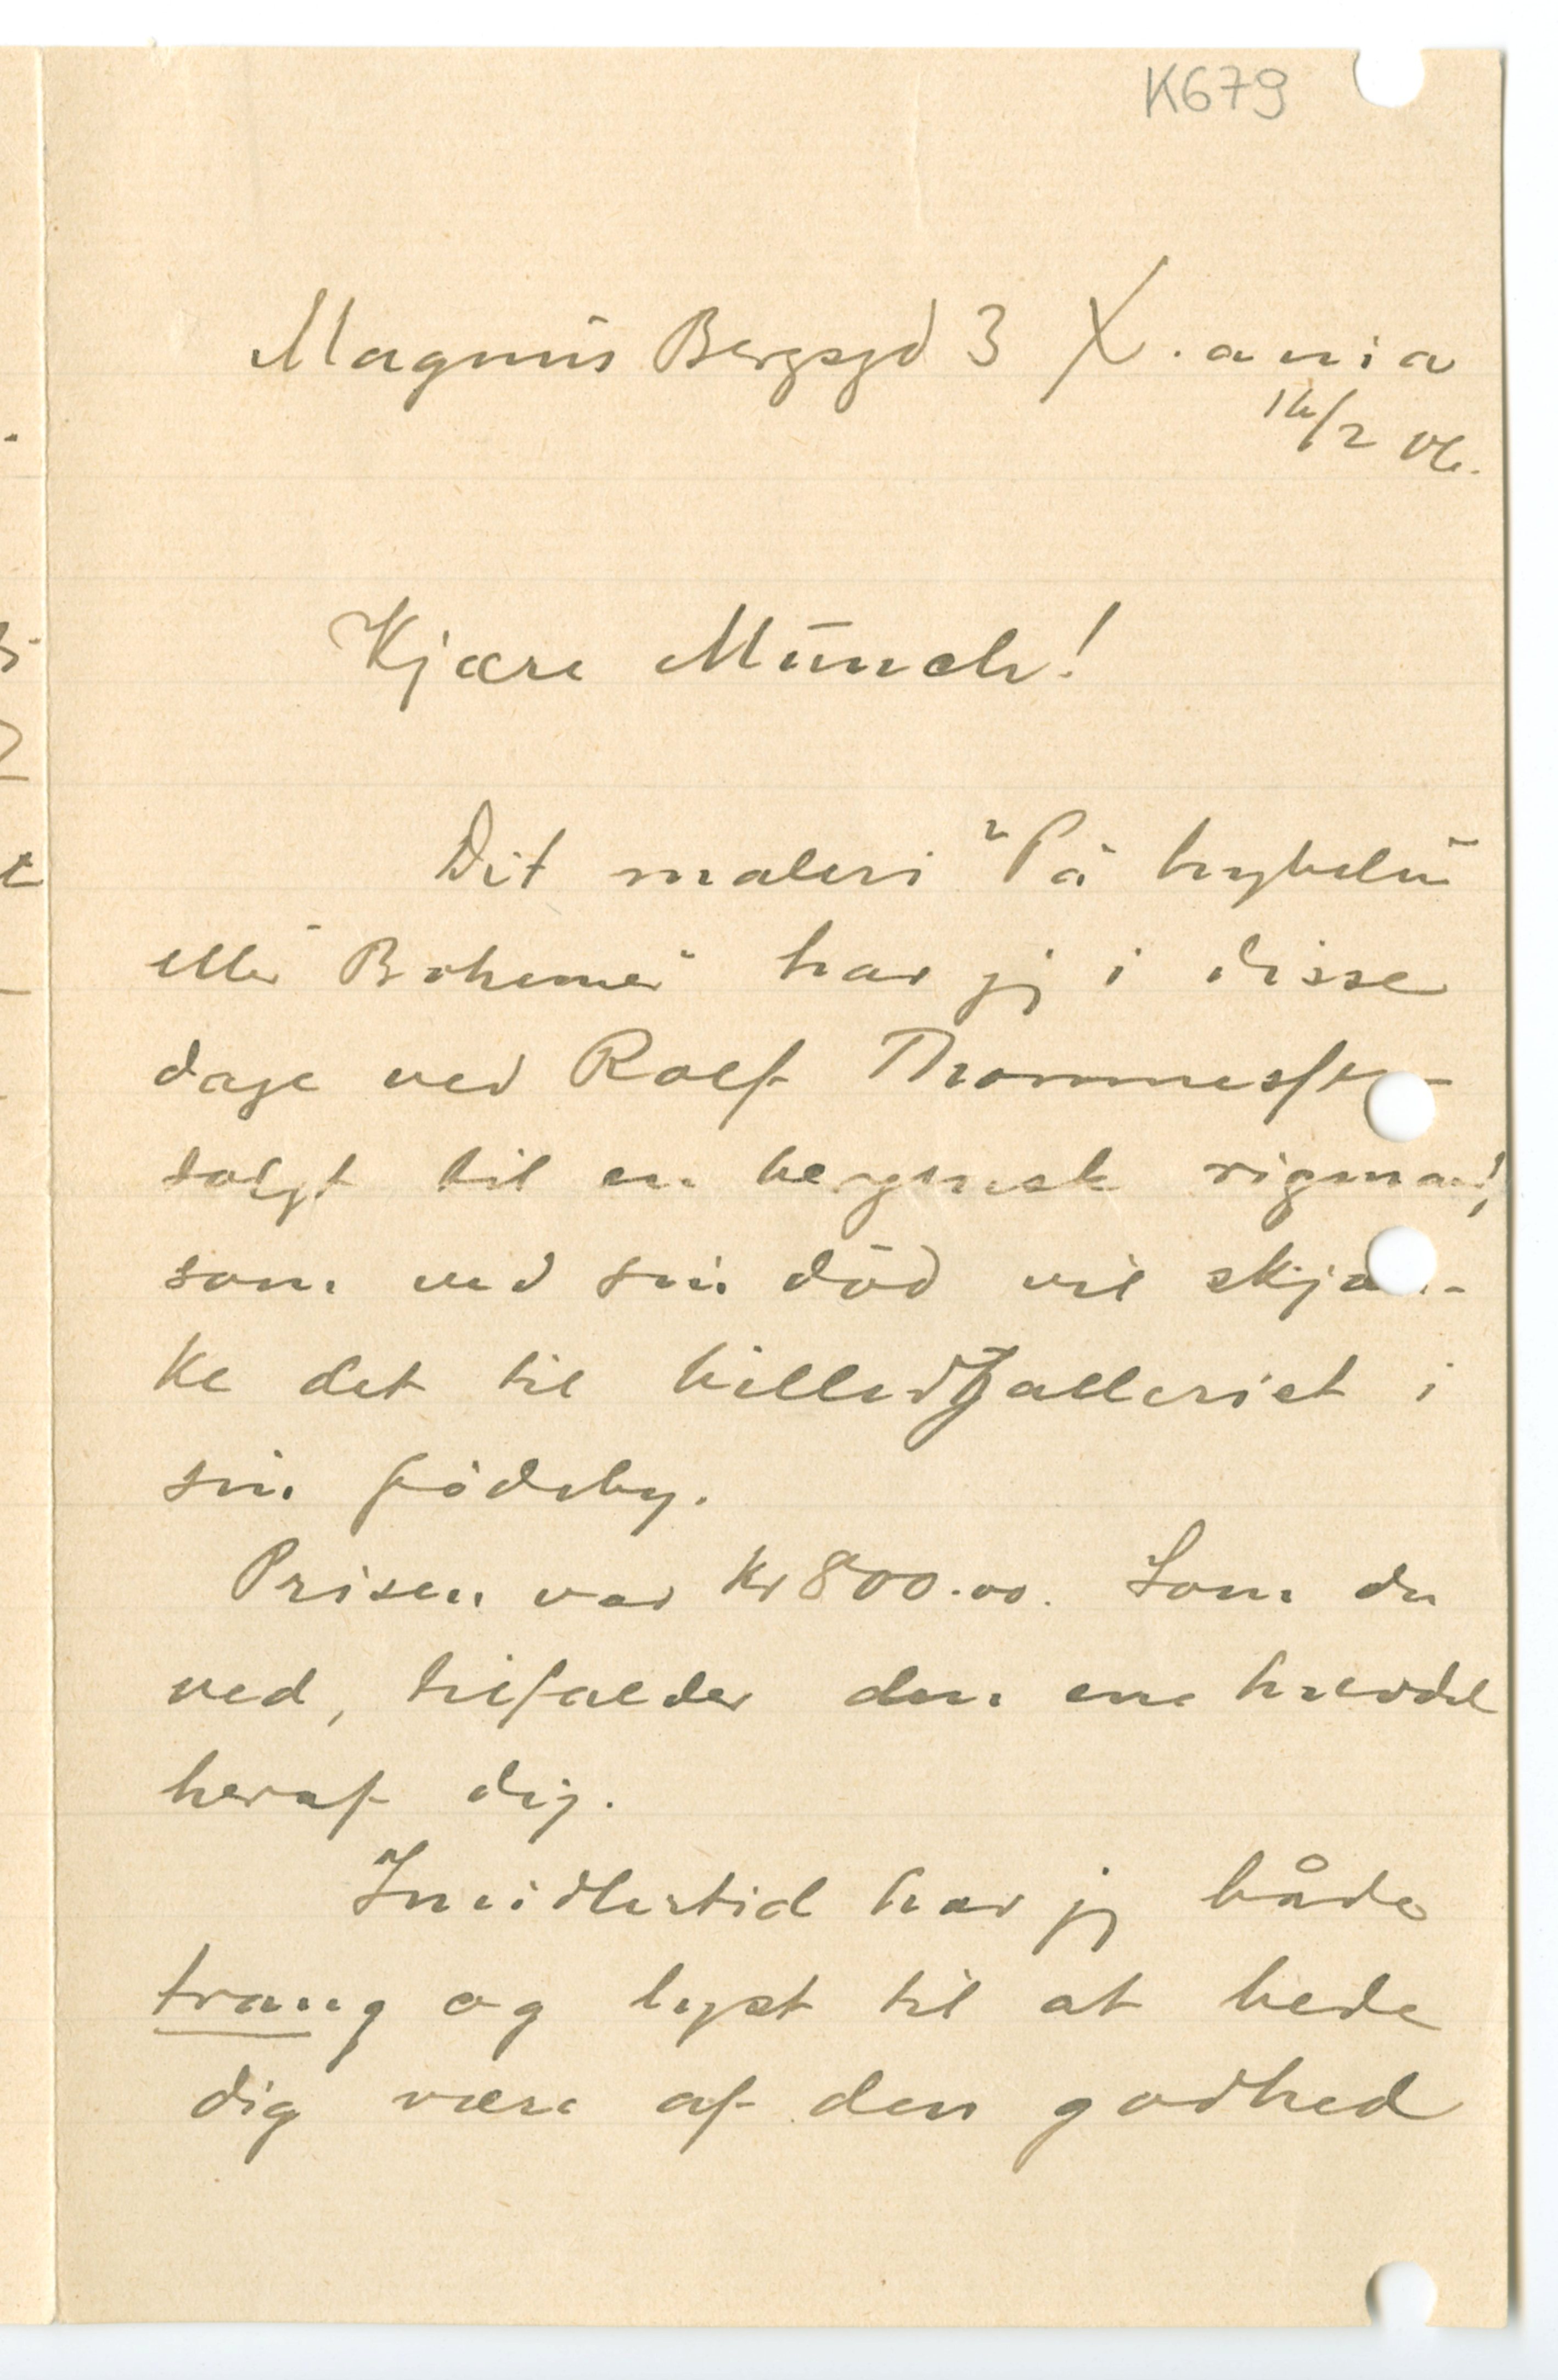 K679
Magnus Bergsgd 3 X.ania
16/2 06.
Kjære Münch!
Dit maleri "På hybelen"
eller "Bohemer" har jeg i disse
dage ved Rolf Thommessen
solgt til en bergensk rigmand,
som ved sin död vil skjæn-
ke det til billedgalleriet i
sin födeby.
Prisen var Kr 800.00. Som du
ved, tilfalder den ene halvdel
heraf dig.
Imidlertid har jeg både
trang og lyst til at bede
dig være af den godhed